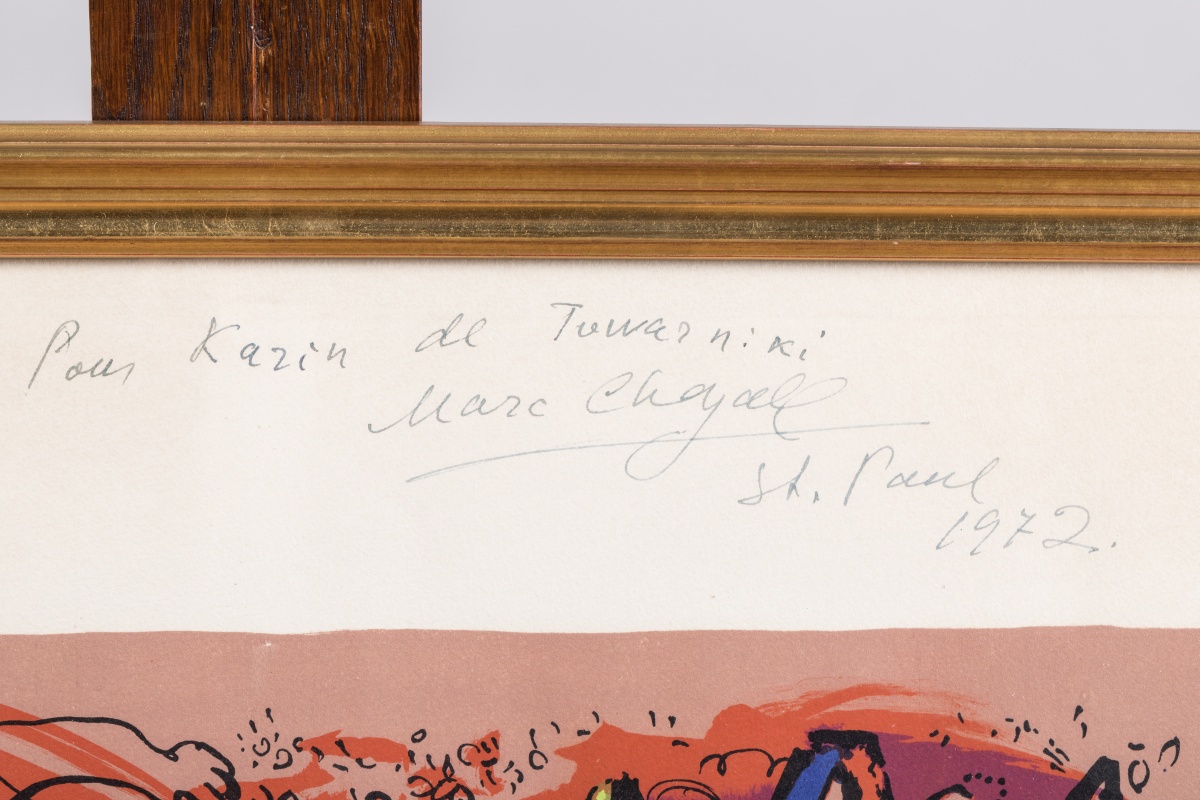 Pour Karin de Towarniki
Marc Chagall
St. Paul
1972.